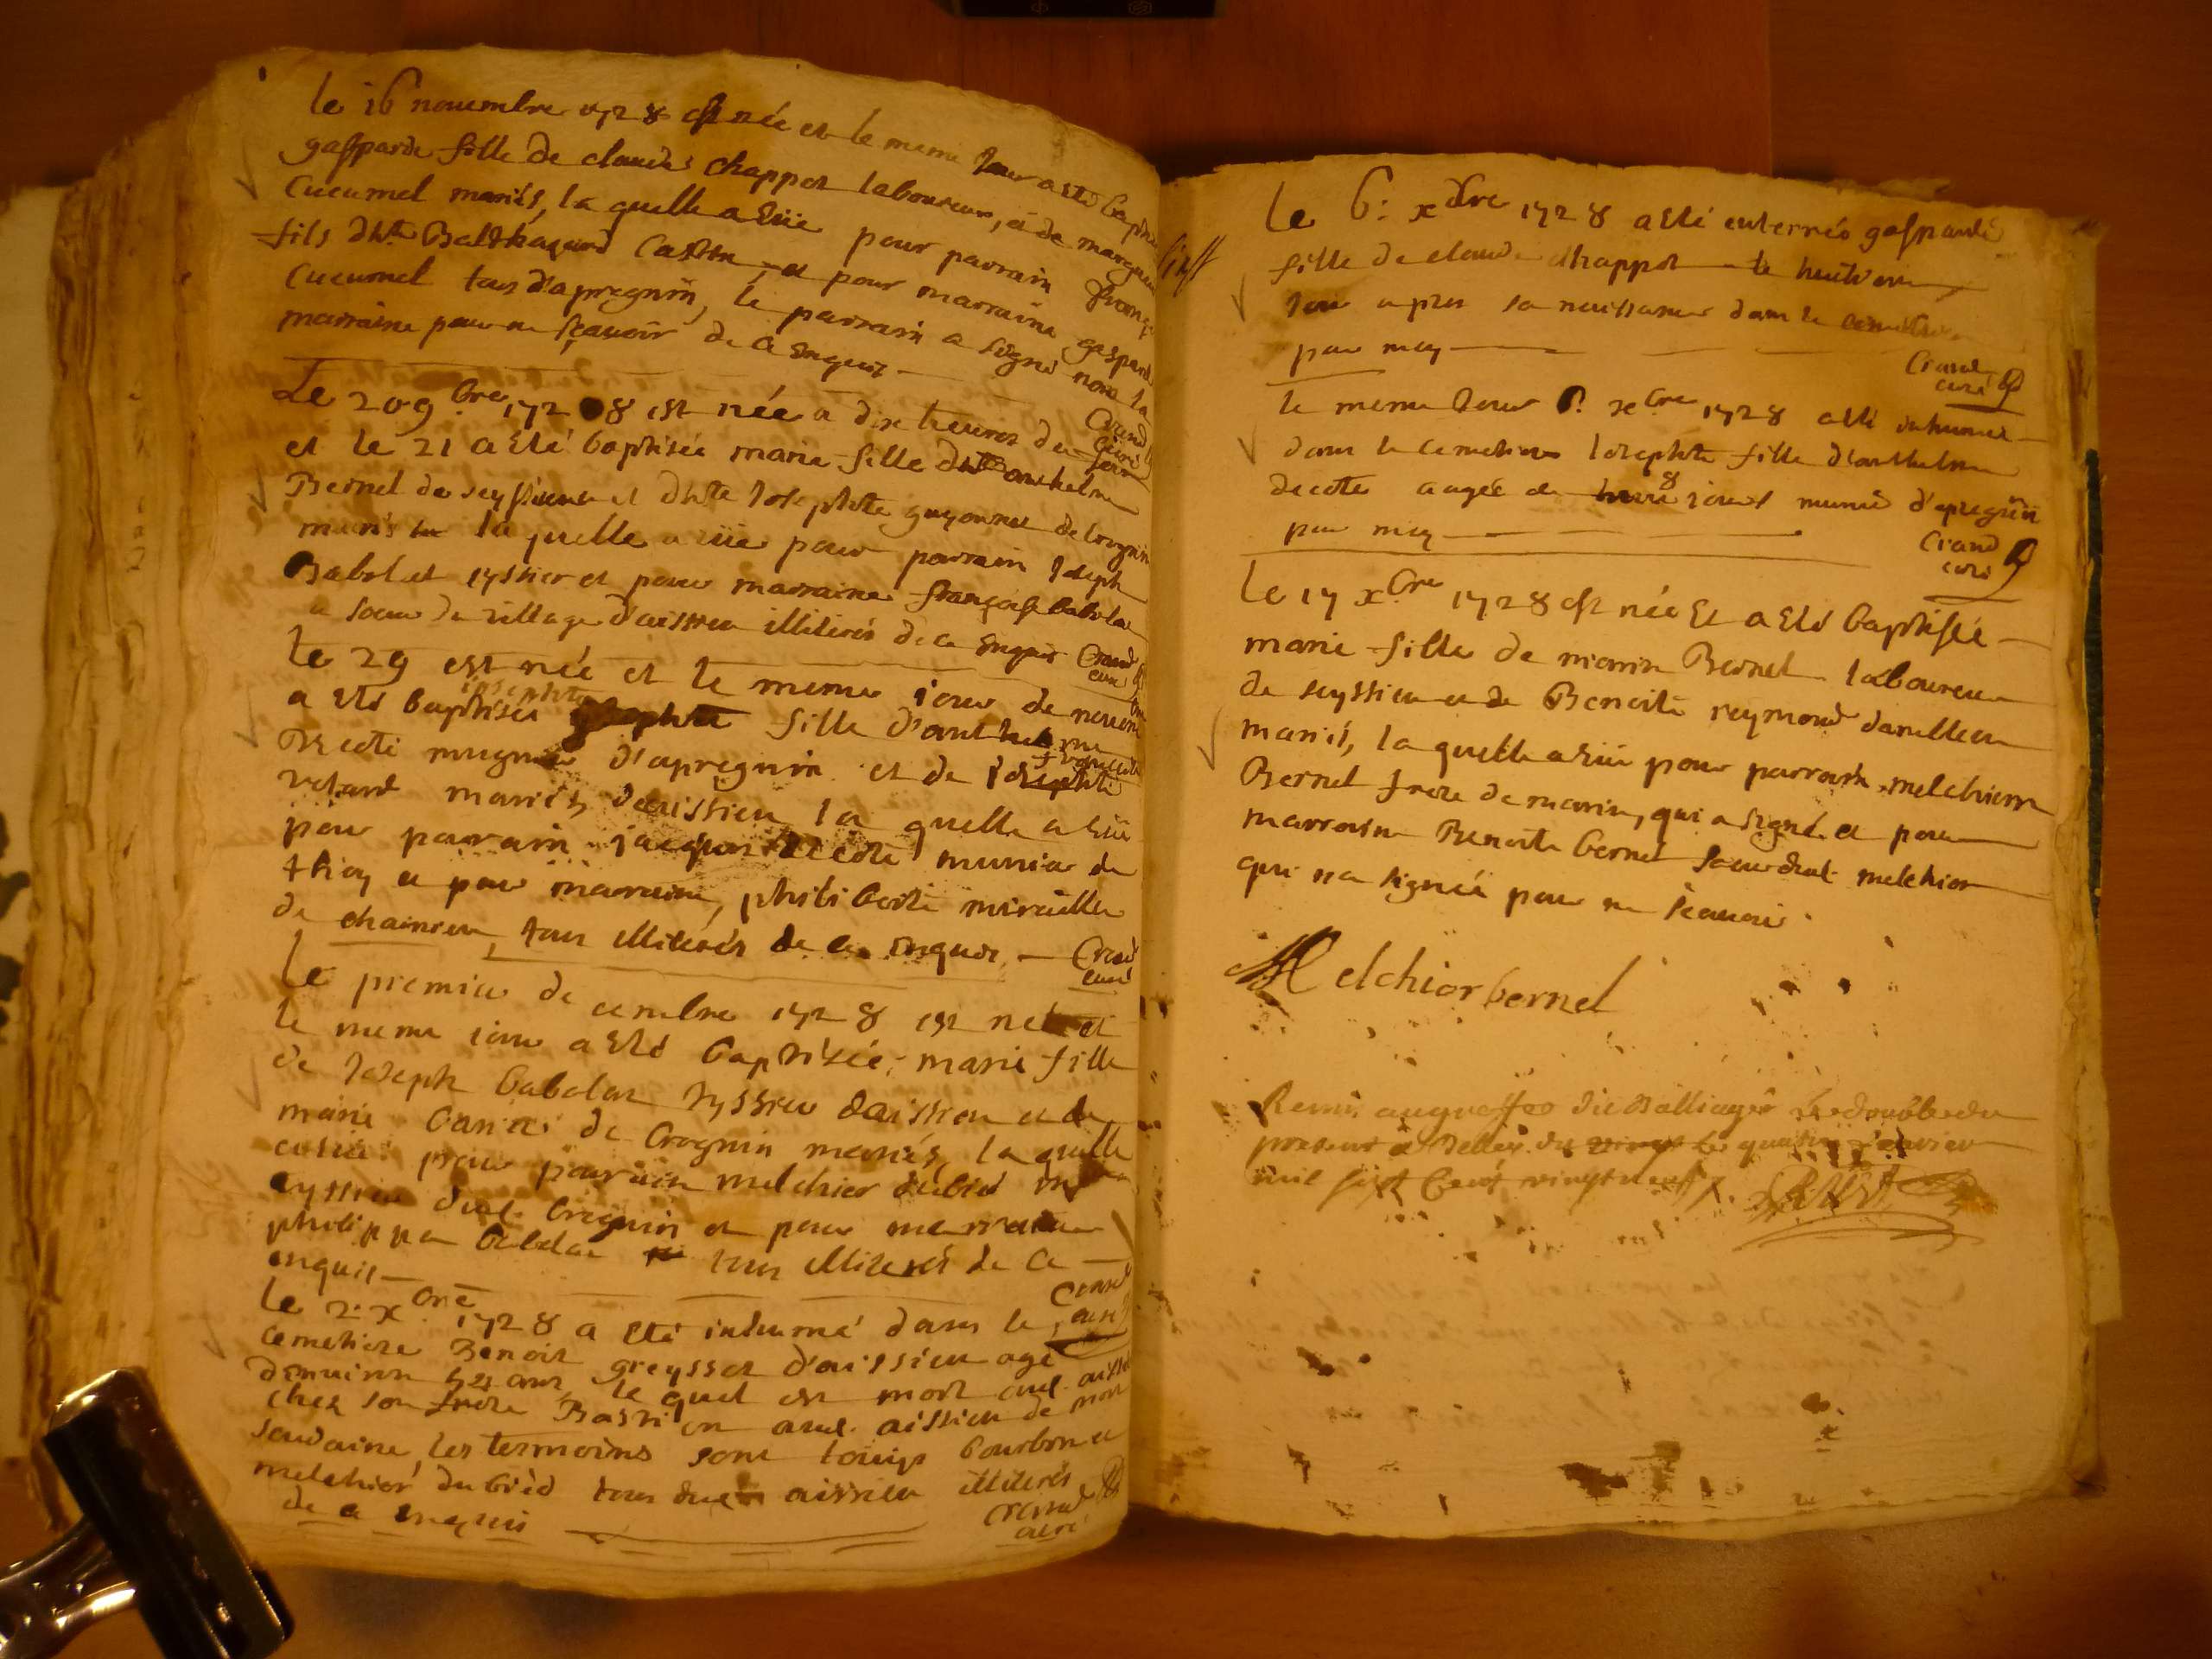 le 16 nouembre 1728 est née et le meme Jour a eté bapti
gasparde fille de claude chappot laboureur, et de margue
Cucumel mariés, la quelle a eüe pour parrain
fils d'hte Balthazard Castin, et pour marraine gasparde
Cucumel tous d'apregnin, le parrain a signé non la
marraine pour ne sçauoir de ce enquis
Crand
curé
Le 20 9.bre 1728 est née a dix heures du soir
et le 21 a eté baptisée marie fille d'hte anthelme
Bernel de seyssieu et d'hte Josephte guyonnet de Crognin
mariés la quelle a eüe pour parrain Joseph
Babolat tyssier et pour marraine françoise babola
sa soeur du village d'aissieu illiterés de ce enquis Crand
curé
le 29 est née et le meme iour
a eté baptisée
iosephte
fille d'anthelme
Decote mugnier d'apregnin et de
mariés d'aissieu la quelle a eüe
pour parrain jacques Decote munier de
thoy et pour marraine, philiberte miraille
de chainieu, tous illiterés de ce enquis Crand
curé
Le premier decembre 1728 est née et
le meme iour a eté baptisée marie fille
de Joseph babolat tyssieu d'aissieu et de
marie de Crognin mariés, la quelle
a eüe pour parrain melchior dubied
tyssieu dud. Crognin et pour marraine
philippa babolat tous illiterés de ce
enquis
Crand
curé
le 2. xbre 1728 a eté inhumé dans le
cemetiere Benoit greysset d'aissieu agé
d'enuiron ans, le quel est mort aud. aissieu
chez son frere Bastien aud. aissieu de mort
soudaine, les termoins sont louys bourbon et
melchior du bied tous dud. aissieu illiterés
de ce enquis
Crand
curé
Le 6: xbre 1728 a eté enterrée gasparde
fille de claude chappot le huitieme
Jour apres sa naissance dans le cemetiere
par moy
Crand
curé
le meme Jour 6. xbre 1728 a eté inhumée
dans le cemetiere Josephte fille d'anthelme
decote aagée de 8 iours munié d'apregnin
par moy
Crand
curé
Le 17 xbre 1728 est née Et a eté baptisée
marie fille de marin Bernel laboureur
de seyssieu et de Benoite reymond
mariés, la quelle a eüe pour parrain melchior
Bernel frere de marin, qui a signé et pour
marraine Benoite bernel soeur dud. melchior
qui n'a signée pour ne sçauoir
Melchior bernel
Remis au greffe du Balliage le double du
present a Belley le quatre janvier
mil sept cent vingt neuf